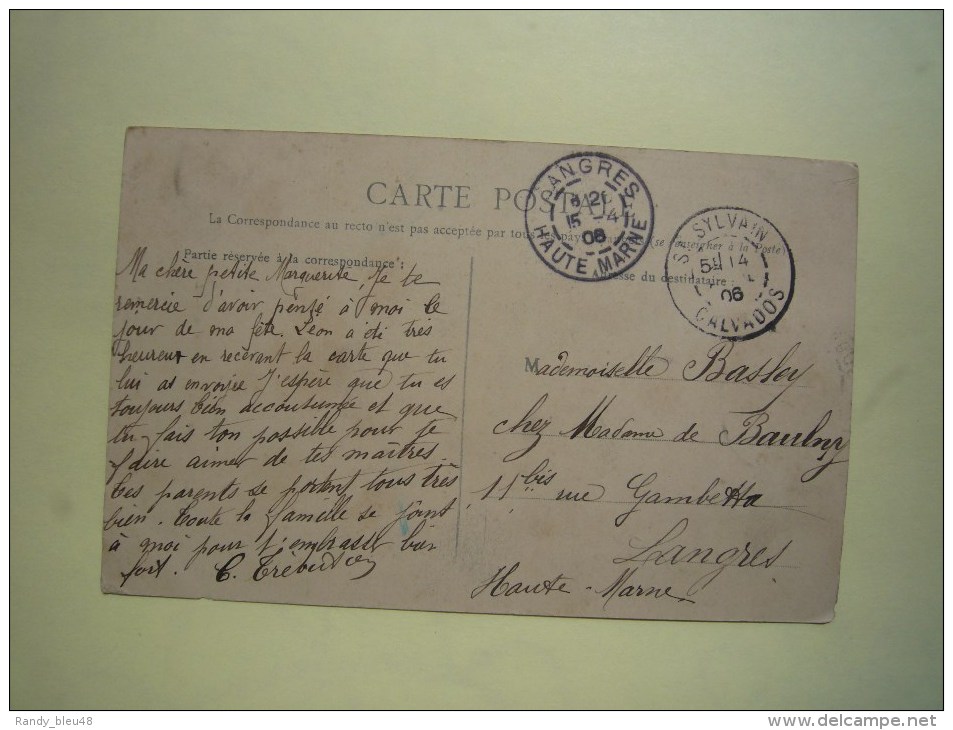 CARTE POSTALE
La Correspondance au recto n'est pas acceptée par tous les pays (se renseigner à la Poste)
Partie réservée à la correspondance :
Adresse du destinataire :
LANGRES
15 4
06
HAUTE MARNE
ST SYLVAIN
14
06
CALVADOS
Ma chère petite Marguerite, Je te
remercie d'avoir pensé à moi le
jour de ma fête. Léon a été très
heureux en recevant la carte que tu
lui as envoyée J'espère que tu es
toujours bien accoutumée et que
tu fais ton possible pour te
faire aimer de tes maîtres.
Tes parents se portent tous très
bien. Toute la famille se joint
à moi pour t'embrasser bien
fort. C.
Mademoiselle Basley
chez Madame de Baulny
11 bis rue Gambetta
Langres
Haute-Marne
Randy_bleu48
delcampe.net